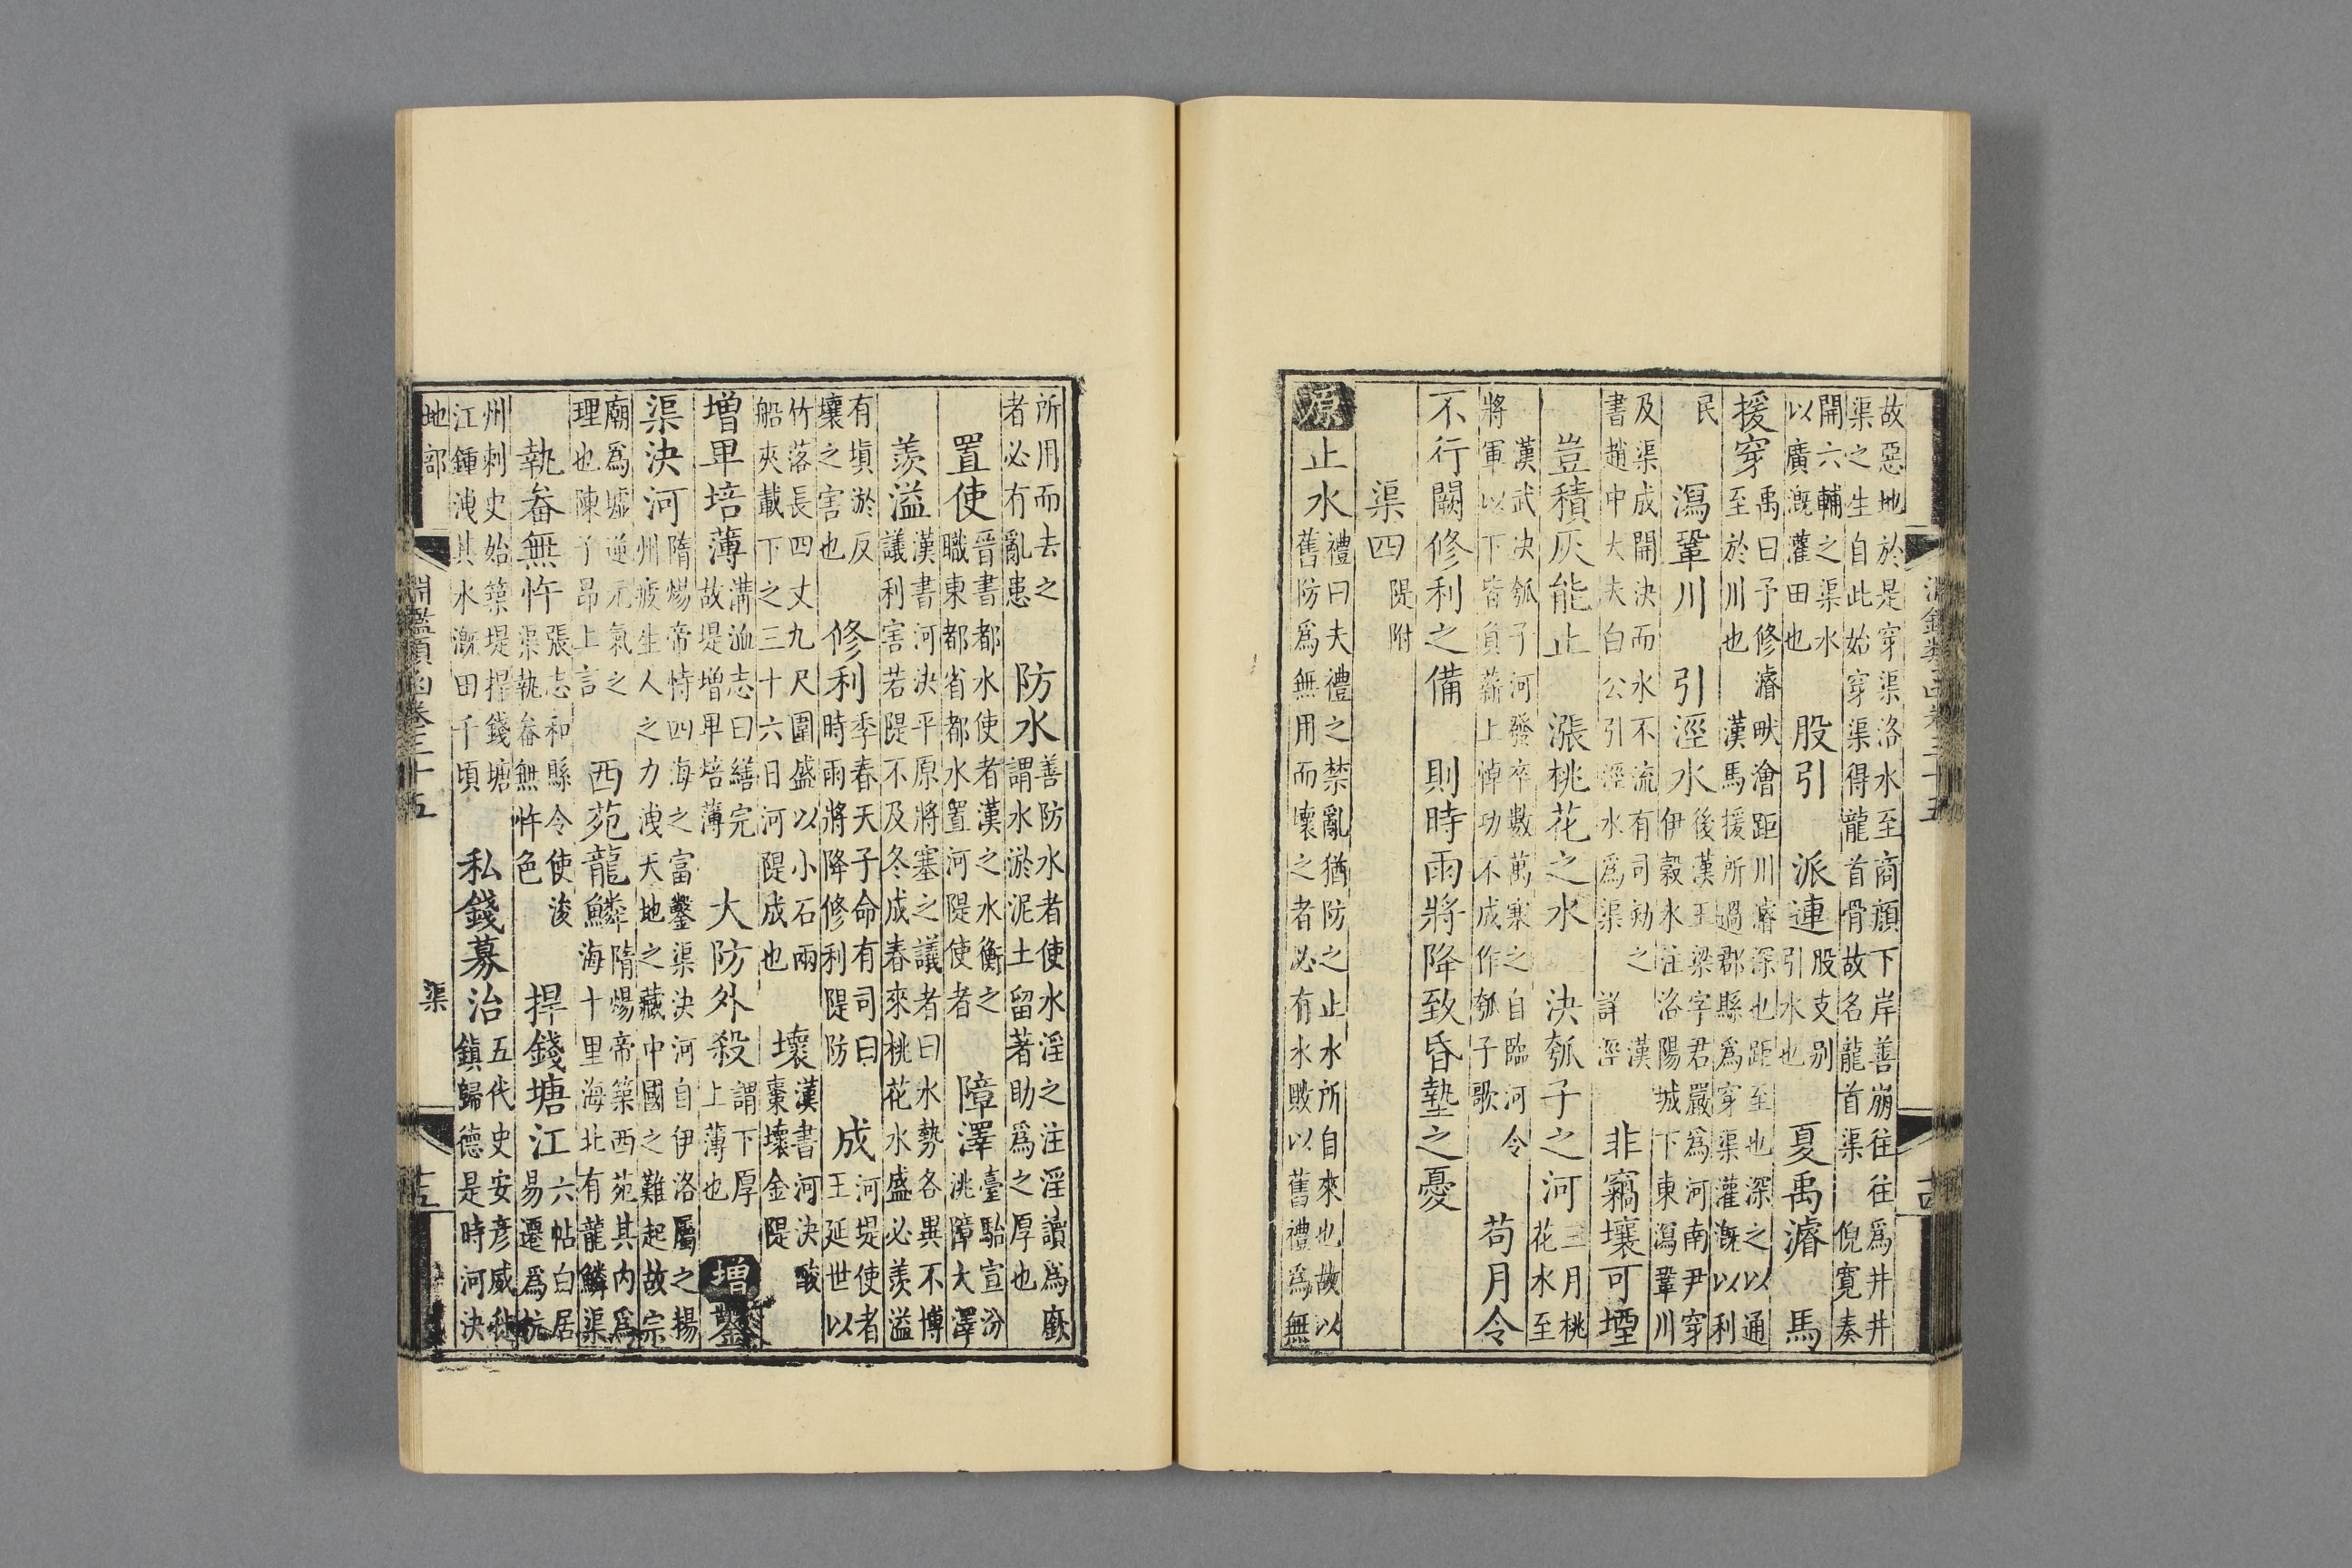 故惡地於是穿渠洛水至商顔下岸善崩往往爲井井
渠之生自此始穿渠得龍首骨故名龍首渠 倪寬奏
開六輔之渠水以廣漑灌田也 股引 派連 股支别引水也 夏禹濬 馬
援穿 禹曰予修濬畎澮距川濬深也距至也深之以通至於川也 漢馬援所過郡縣爲穿渠灌漑以利
民 瀉鞏川 引涇水 後漢王梁字君嚴爲河南尹穿伊穀水注洛陽城下東瀉鞏川
及渠成開決而水不流有司劾之 漢書趙中大夫白公引涇水爲渠 詳涇 非竊壤可堙
豈積灰能止 漲桃花之水 決瓠子之河 三月桃花水至
漢武決瓠子河發卒數萬寨之自臨河令將軍以下皆負薪上悼功不成作瓠子歌 苟月令
不行闕修利之備 則時雨將降致昏墊之憂
渠四 隄附
原 止水 禮曰夫禮之禁亂猶防之止水所自來也故以舊防爲無用而壞之者必有水敗以舊禮爲無
所用而去之者必有亂患 防水 善防水者使水淫之注淫讀爲廞謂水淤泥土留著助爲之厚也
置使 晉書都水使者漢之水衡之職東都省都水置河隄使者 障澤 臺駘宣汾洮障大澤
羨溢 漢書河決平原將塞之議者曰水勢各異不博議利害若隄不及冬成春來桃花水盛必羨溢
有塡淤反壞之害也 修利 季春天子命有司曰時雨將降修利隄防 成 河堤使者王延世以
竹落長四丈九尺圍盛以小石兩船夾載下之三十六日河隄成也 壞 漢書河決棗壞金隄
增卑培薄 溝洫志曰繕完故堤增卑培薄 大防外殺 謂下厚上薄也 增 鑿
渠決河 隋煬帝恃四海之富鑿渠決河自伊洛屬之揚州疲生人之力洩天地之藏中國之難起故宗
廟爲墟逆元氣之理也陳子昂上言 西苑龍鱗 隋煬帝築西苑其内爲海十里海北有龍鱗渠
執畚無忤 張志和縣令使浚渠執畚無忤色 捍錢塘江 六帖白居易遷爲杭
州刺史始築堤捍錢塘江鍾洩其水漑田千頃 私錢募治 五代史安彦威徙鎮歸德是時河決
地部 淵鑑類函卷三十五 渠 十五